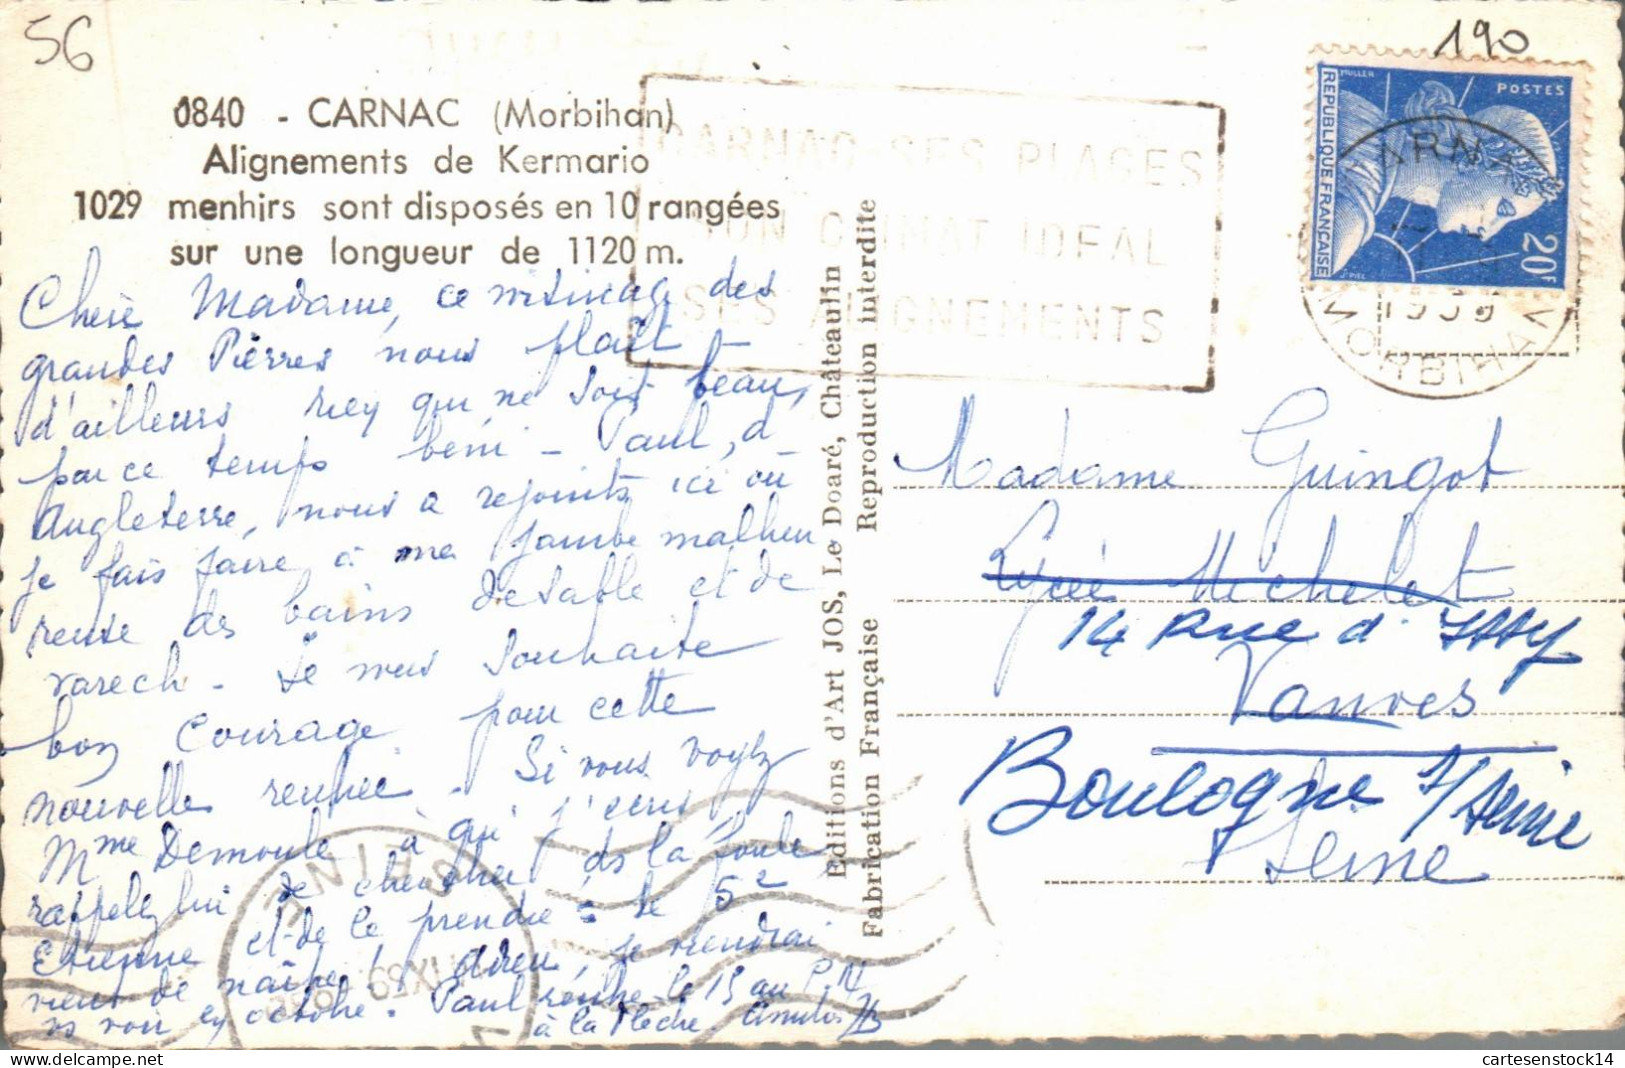 56
190
0840 - CARNAC (Morbihan)
Alignements de Kermario
1029 menhirs sont disposés en 10 rangées
sur une longueur de 1120 m.
CARNAC-SES PLAGES
SON CLIMAT IDEAL
SES ALIGNEMENTS
MULLER
POSTES
REPUBLIQUE FRANÇAISE
20F
CARNAC
1959
MORBIHAN
Chère Madame, ce des
grandes Pierres nous plaît
d'ailleurs rien qui ne soit beau,
par ce temps béni - Paul, d'
Angleterre, nous a rejoints ici où
je fais faire à ma jambe malheu
reuse des bains de sable et de
varech - Je vous souhaite
bon courage pour cette
nouvelle rentrée. Si vous voyez
Mme Demoule à qui j'écris,
rappelez lui de chercher ds la foule
Etienne et de le prendre : le 5e
vient de naître ! Adieu, je viendrai
vs voir en octobre. Paul rentre le 15 au P.N
à la Flèche.
Editions d'Art JOS, Le Doaré, Châteaulin
Fabrication Française Reproduction interdite
Madame Guingot
Lycée Michelet
14 Rue d'Issy
Vanves
Boulogne s/Seine
Seine
SEINE
cartesenstock14